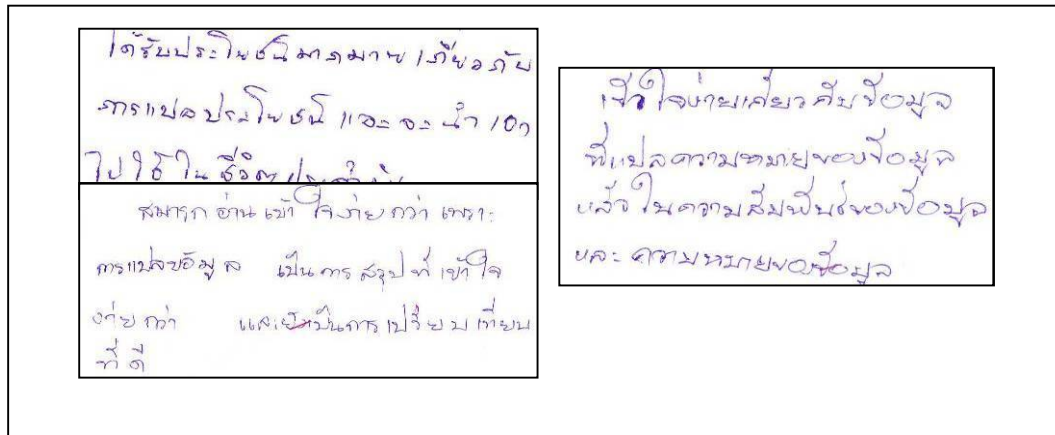 ได้รับประโยชน์มากมายเกี่ยวกับ
การแปลประโยชน์ และจะนำเอา
ไปใช้ในชีวิตประจำวัน
สมารถอ่านเข้าใจง่ายกว่า เพราะ
การแปลข้อมูล เป็นการสรุปที่เข้าใจ
ง่ายกว่า และเป็นการเปรียบเทียบ
ที่ดี
เข้าใจง่ายเกี่ยวกับข้อมูล
ที่แปลความหมายของข้อมูล
แล้วในความสัมพันธ์ของข้อมูล
และความหมายของข้อมูล